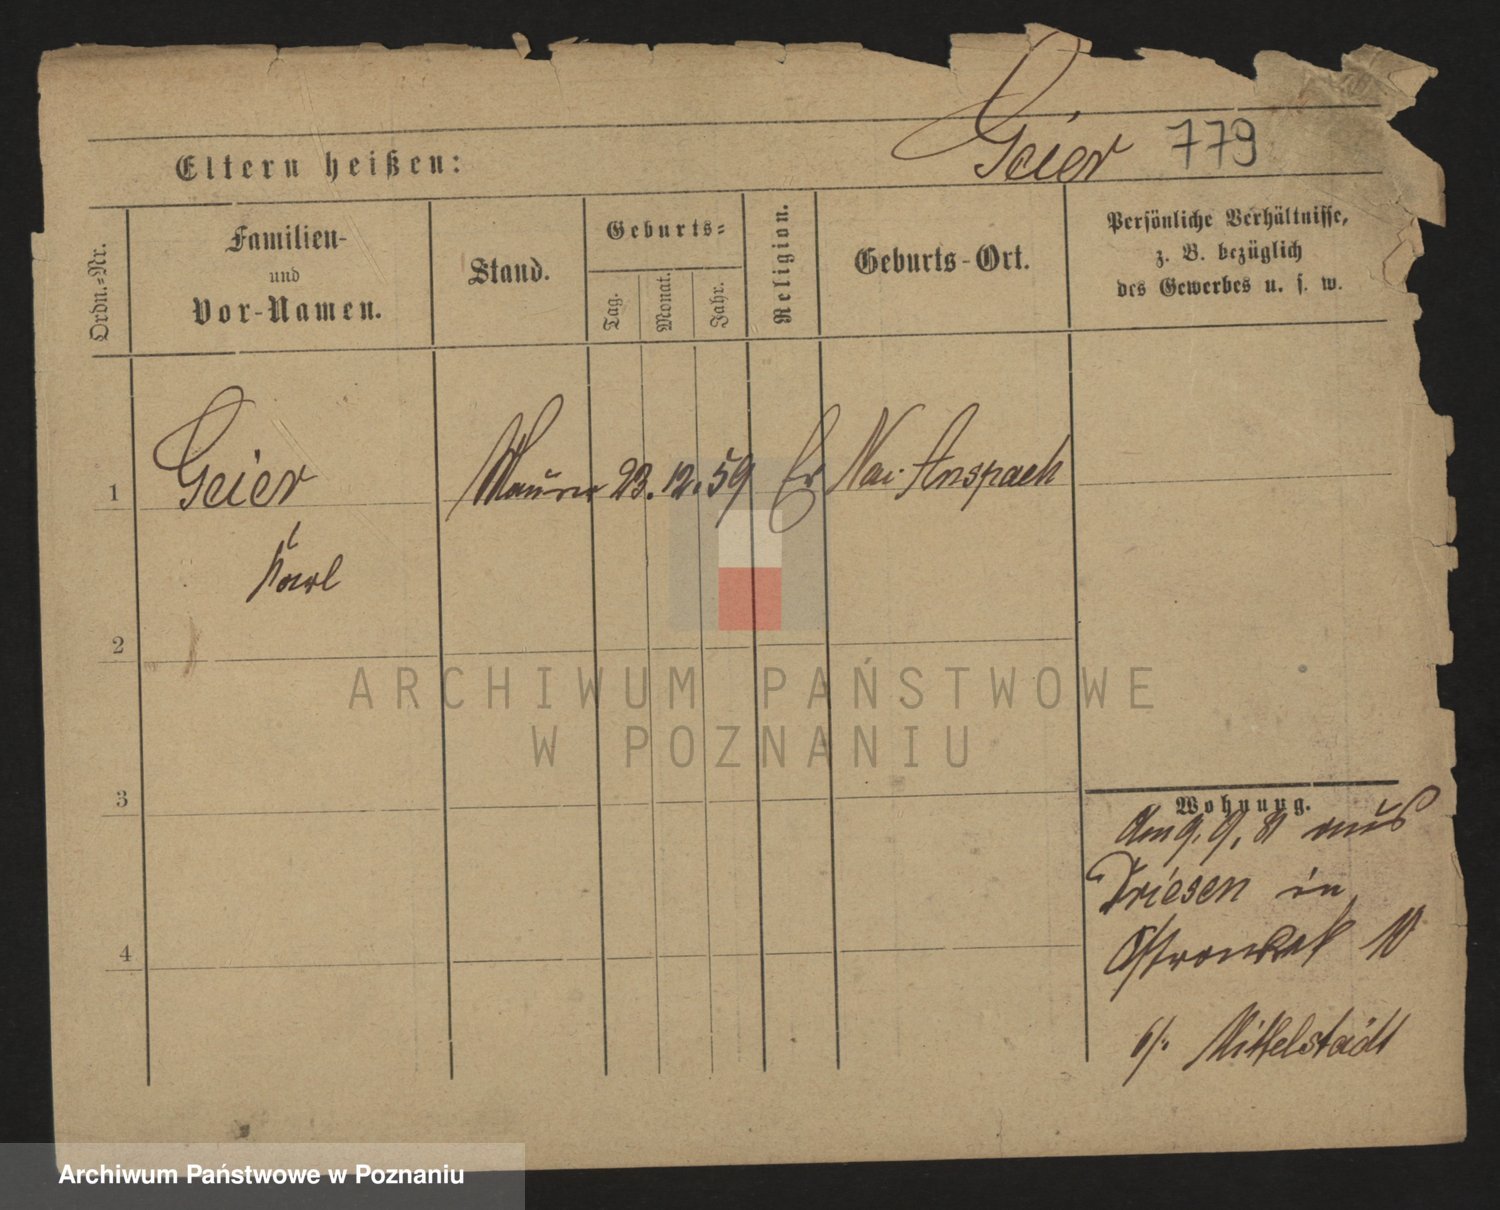 Geier 779
Eltern heißen:
Ordn.-Nr.
Familien-
und
Vor-Namen.
Stand.
Geburts-
Tag.
Monat.
Jahr.
Religion.
Geburts-Ort.
Persönliche Verhältnisse,
z. B. bezüglich
des Gewerbes u. s. w.
1 Geier Maurer 23. 12. 59 Ev Nai Anspach
Karl
2
3
4
Wohnung.
Am 9. 9. 81 aus
Driesen in
10
b/. Mittelstädt
ARCHIWUM PAŃSTWOWE
W POZNANIU
Archiwum Państwowe w Poznaniu